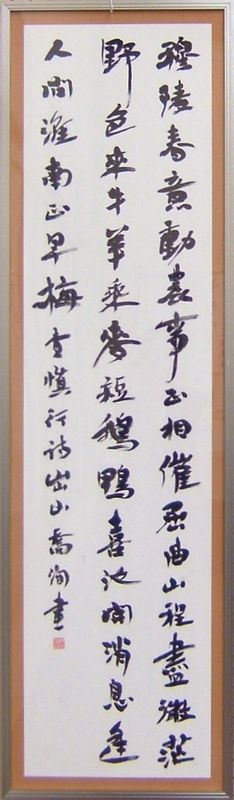 穆陵春意動農事正相催屈曲山程盡微茫
野色來牛羊乘麥短鵝鴨喜池開消息逢
人問淮南正早梅查慎行詩出山喬洵書